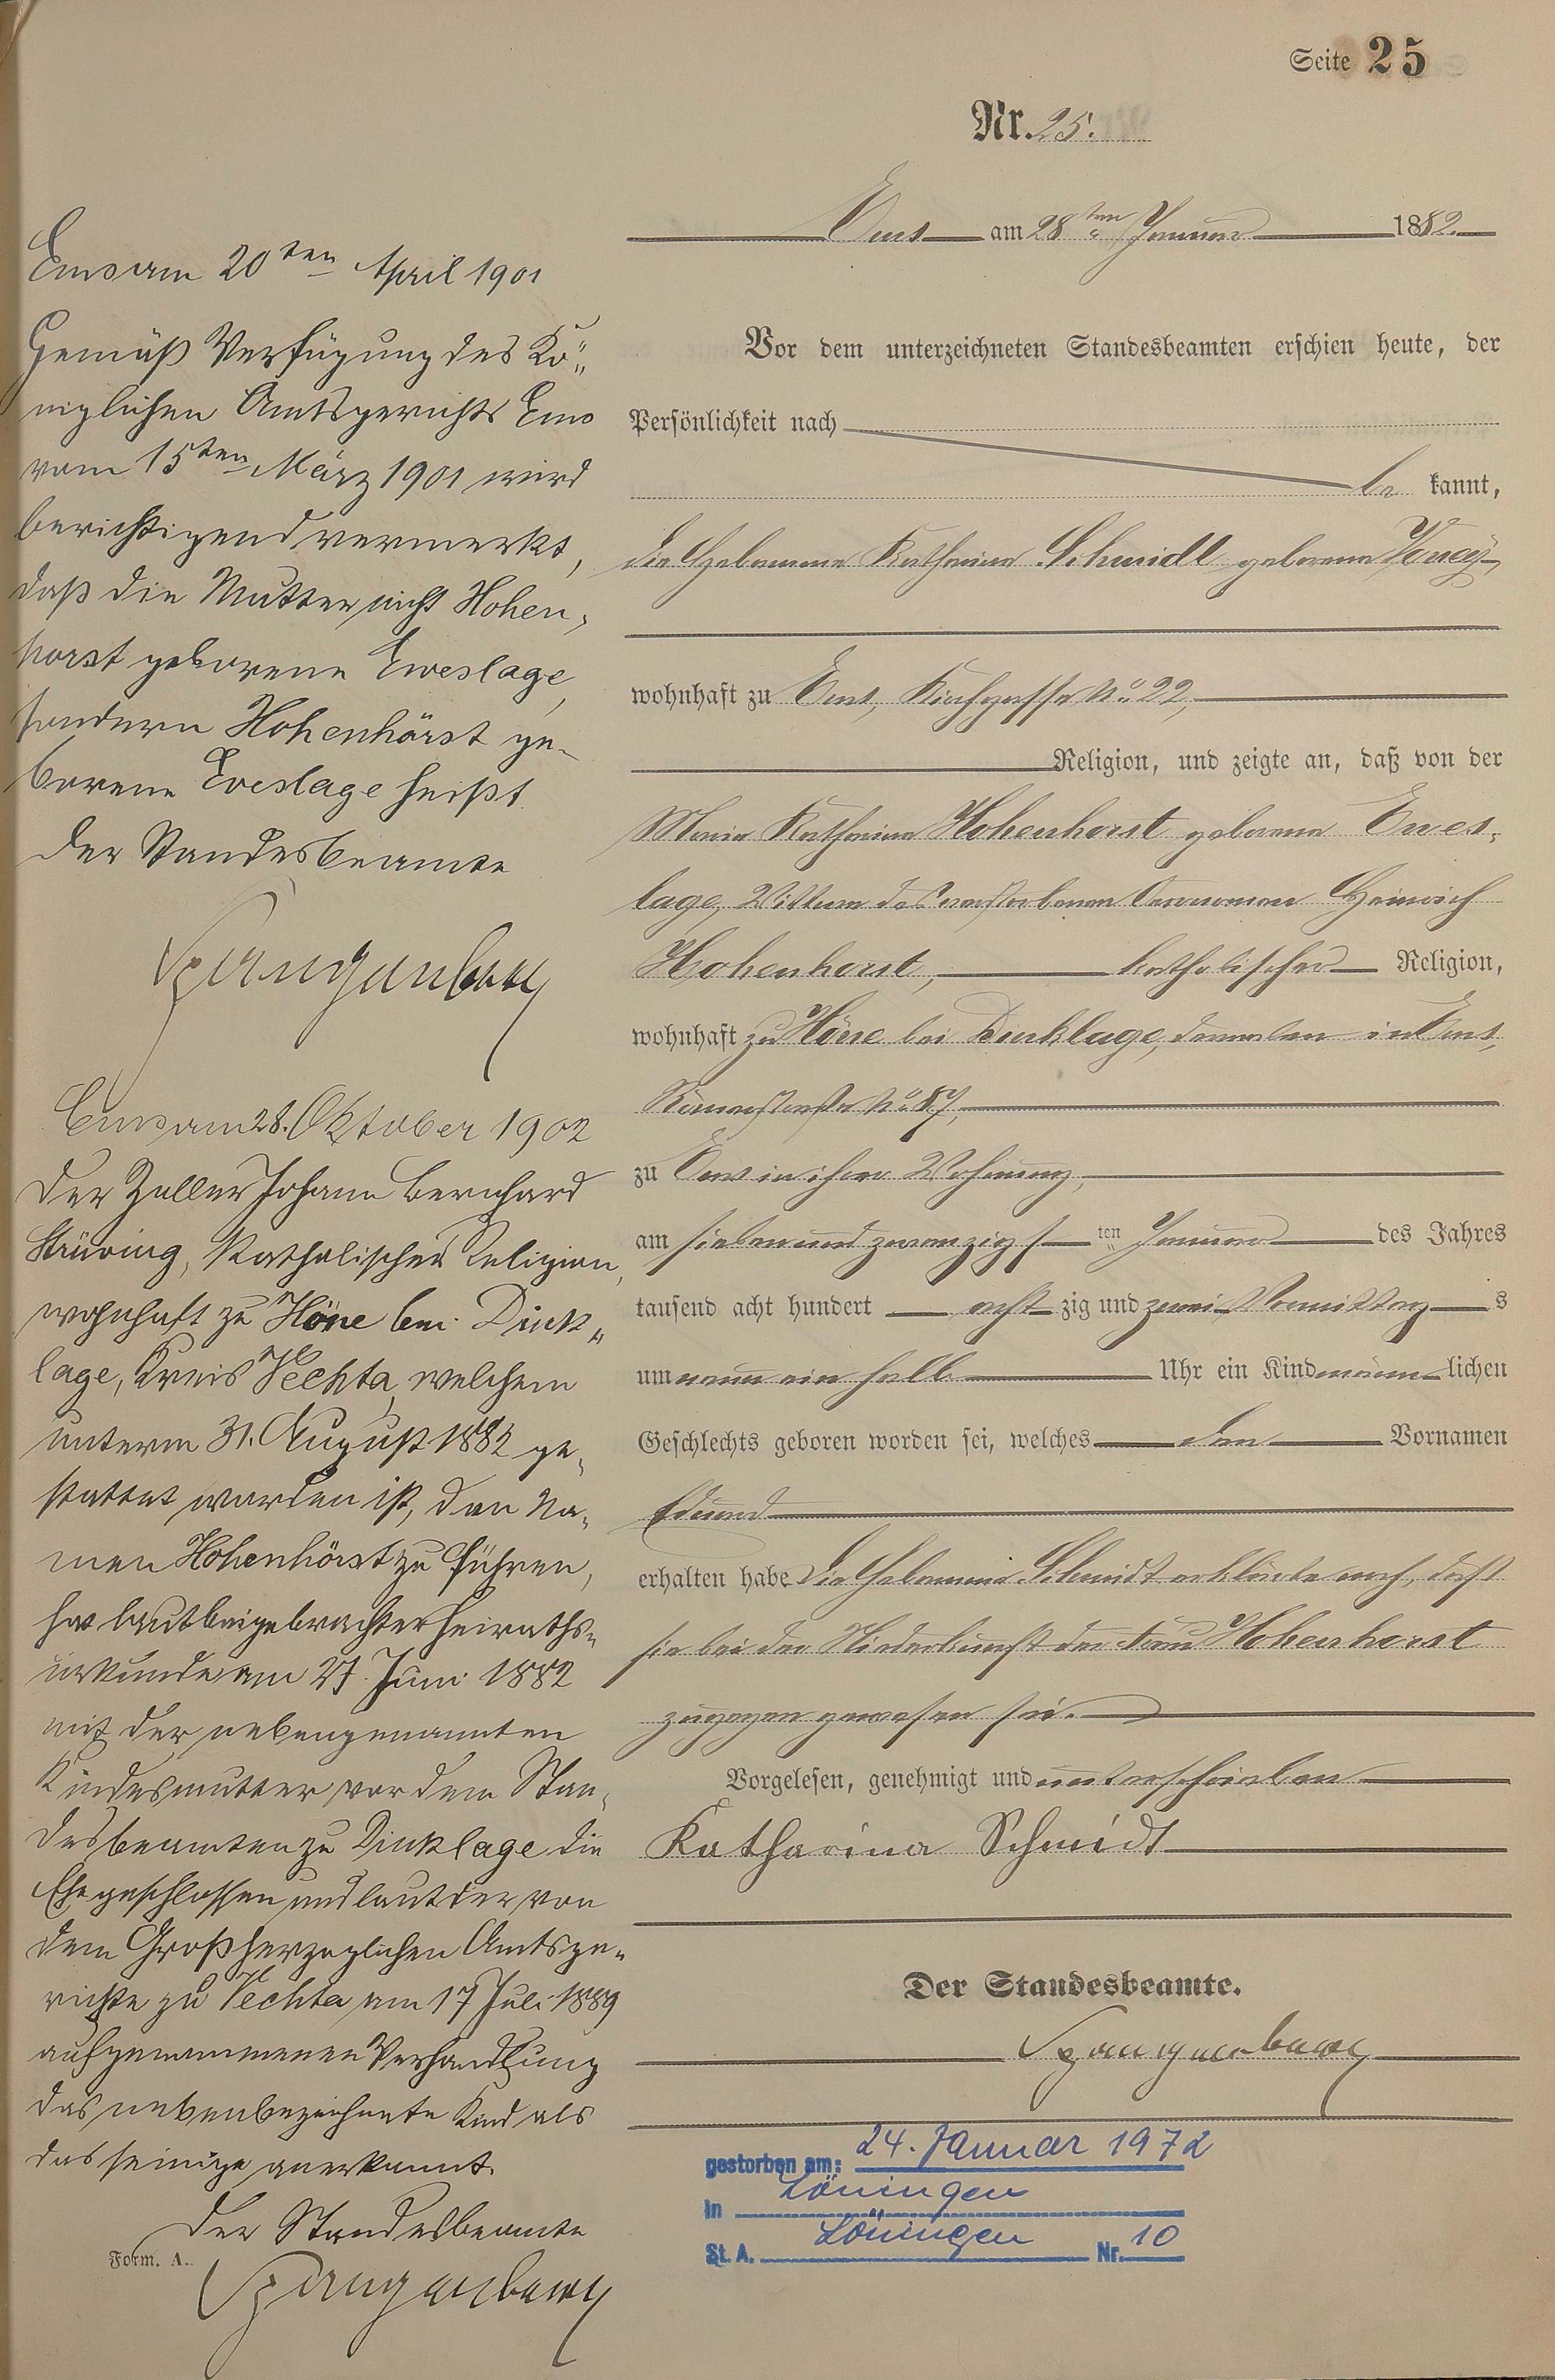 Seite 25
Nr. 25.
Ems am 28ten Januar 1882.
Vor dem unterzeichneten Standesbeamten erschien heute, der
Persönlichkeit nach
be kannt,
die Hebamme Katharina Schmidt geborene
wohnhaft zu Ems, Kirchgasse No 22,
Religion, und zeigte an, daß von der
Maria Katharina Hohenhorst geborene Ewes-
lage, Wittwe des verstorbenen Oeconomen Heinrich
Hohenhorst, katholischer Religion,
wohnhaft zu Höne bei Dinklage, dermalen in Ems,
Römerstraße No 87,
zu Ems in ihrer Wohnung,
am siebenundzwanzigsten Januar des Jahres
tausend acht hundert acht zig und zwei Vormittag s
um neun ein halb Uhr ein Kind männ lichen
Geschlechts geboren worden sei, welches den Vornamen
Eduard
erhalten habe. Die Hebamme Schmidt erklärte noch, daß
sie bei der Niederkunft der Frau Hohenhorst
zugegen gewesen sei.
Vorgelesen, genehmigt und unterschrieben
Katharina Schmidt
Der Standesbeamte.
Spangenberg
gestorben am: 24. Januar 1972
in Löningen
St. A. Löningen Nr. 10
Ems am 20ten April 1901
Gemäß Verfügung des Kö-
niglichen Amtsgerichts Ems
vom 15ten März 1901 wird
berichtigend vermerkt,
daß die Mutter nicht Hohen-
horst geborene Eweslage,
sondern Hohenhörst ge-
borene Eveslage heißt.
Der Standesbeamte
Spangenberg
Ems am 28. Oktober 1902
Der Zeller Johann Bernhard
Strüving, katholischer Religion,
wohnhaft zu Höne bei Dink-
lage, Kreis Vechta, welchem
unterm 31. August 1882 ge-
stattet worden ist, den Na-
men Hohenhörst zu führen,
hat laut beigebrachter Heiraths-
urkunde am 27. Juni 1882
mit der nebengenannten
Kindesmutter vor dem Stan-
desbeamten zu Dinklage die
Ehe geschlossen und laut der von
dem Großherzoglichen Amtsge-
richte zu Vechta am 17 Juli 1889
aufgenommenen Verhandlung
das nebenbezeichnete Kind als
das seinige anerkannt.
Der Standesbeamte
Form. A.
Spangenberg